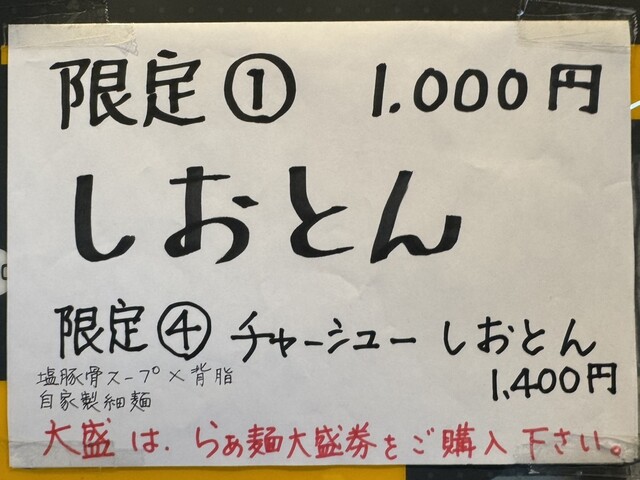 限定① 1.000円
しおとん
限定④ チャーシューしおとん
1,400円
塩豚骨スープ×背脂
自家製細麺
大盛は、らぁ麺大盛券をご購入下さい。